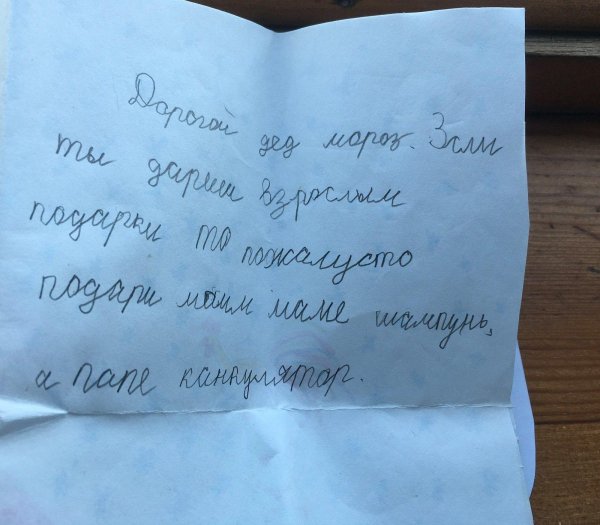 Дорогой дед мороз. Зсли
ты дариш взрослым
подарки то пожалусто
подари маим маме шампунь,
а папе канкулятор.